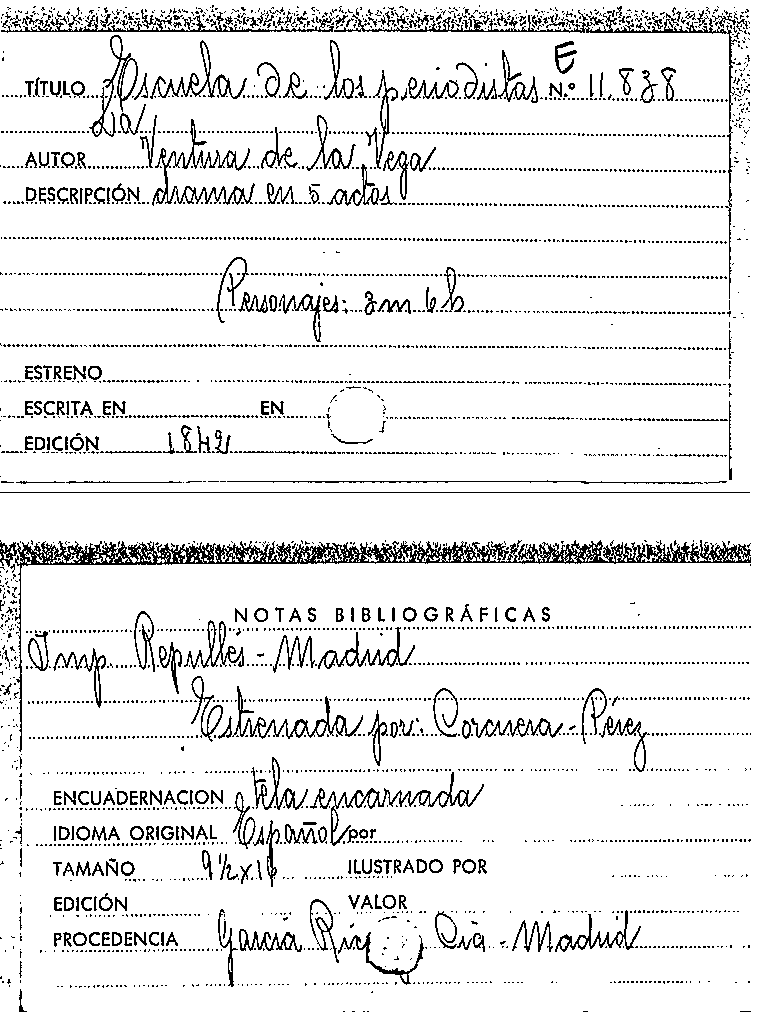 E
TÍTULO Escuela de los periodistas N.º 11.838
La
AUTOR Ventura de la Vega
DESCRIPCIÓN drama en 5 actos
Personajes: 3m 6h
ESTRENO
ESCRITA EN EN
EDICIÓN 1842
NOTAS BIBLIOGRÁFICAS
Imp. Repullés - Madrid
Estrenada por: Corcuera - Pérez
ENCUADERNACION tela encarnada
IDIOMA ORIGINAL Español por
TAMAÑO 9½ x 16 ILUSTRADO POR
EDICIÓN VALOR
PROCEDENCIA García Rico Cía - Madrid